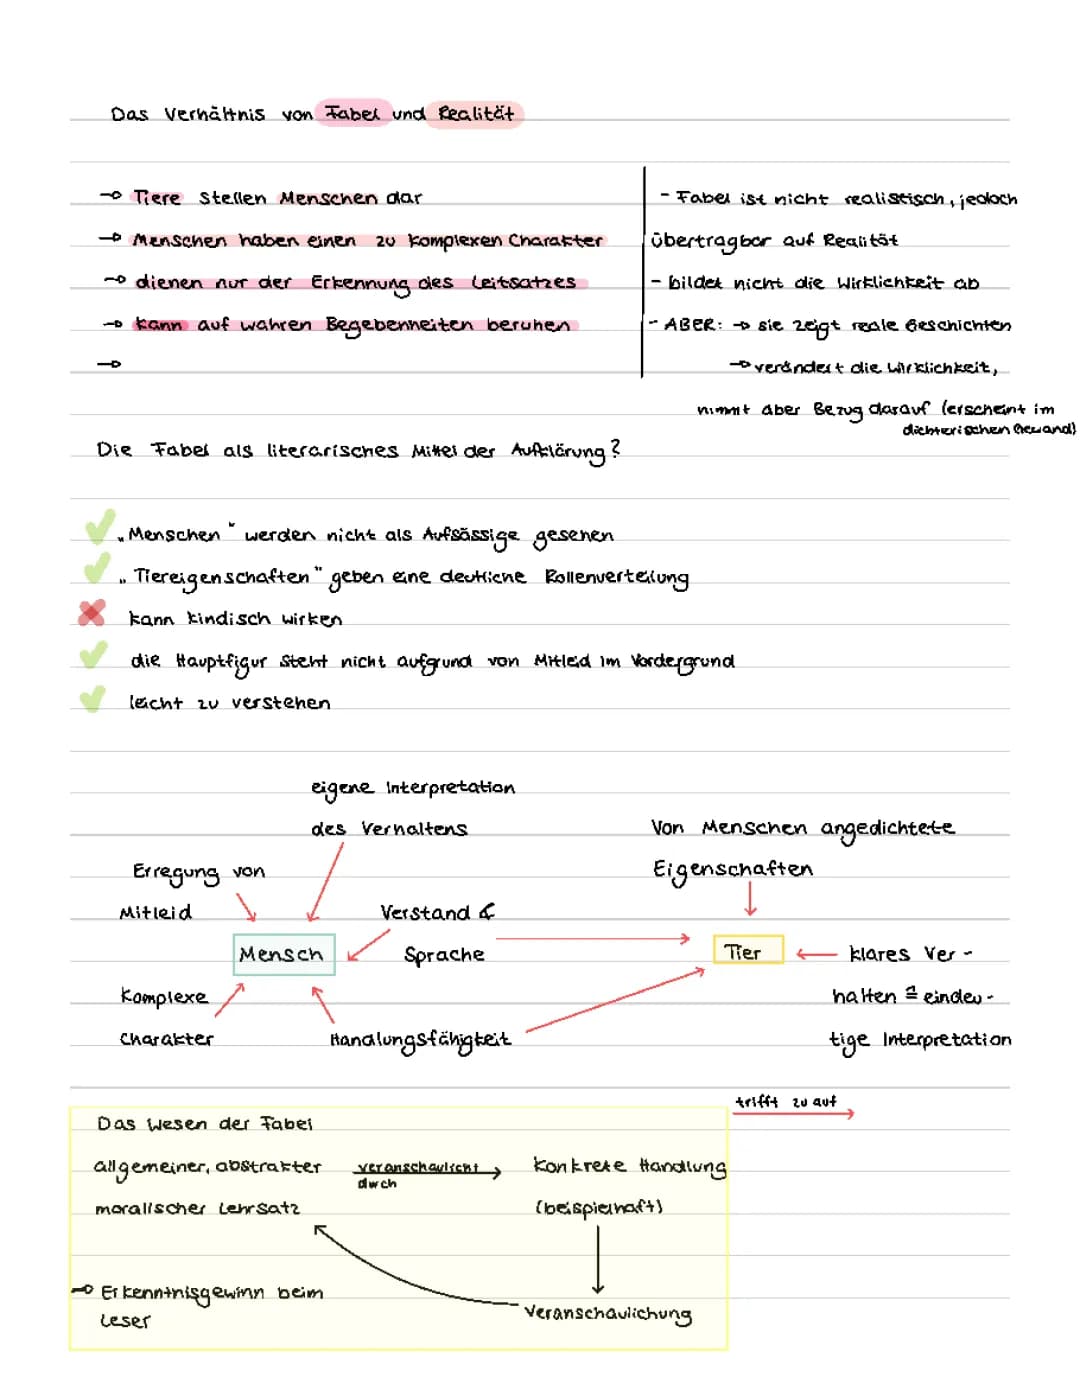 Das Verhältnis von Fabel und Realität
→ Tiere stellen Menschen dar
→ Menschen haben einen zu komplexen Charakter
→ dienen nur der Erkennung des Leitsatzes
→ kann auf wahren Begebenheiten beruhen
→
- Fabel ist nicht realistisch, jedoch
übertragbar auf Realität
- bildet nicht die Wirklichkeit ab
- ABER: → sie zeigt reale Geschichten
→ verändert die Wirklichkeit,
nimmt aber Bezug darauf (erscheint im
dichterischen Gewand)
Die Fabel als literarisches Mittel der Aufklärung?
„Menschen" werden nicht als Aufsässige gesehen
„Tiereigenschaften" geben eine deutliche Rollenverteilung
kann kindisch wirken
die Hauptfigur steht nicht aufgrund von Mitleid im Vordergrund
leicht zu verstehen
eigene Interpretation
des Verhaltens
Von Menschen angedichtete
Eigenschaften
Erregung von
Mitleid
Verstand &
Sprache
Mensch
Tier
klares Ver-
halten ≙ eindeu-
tige Interpretation
Komplexe
Charakter
Handlungsfähigkeit
trifft zu auf
Das Wesen der Fabel
allgemeiner, abstrakter
moralischer Lehrsatz
veranschaulicht
durch
Konkrete Handlung
(beispielhaft)
→ Erkenntnisgewinn beim
Leser
Veranschaulichung